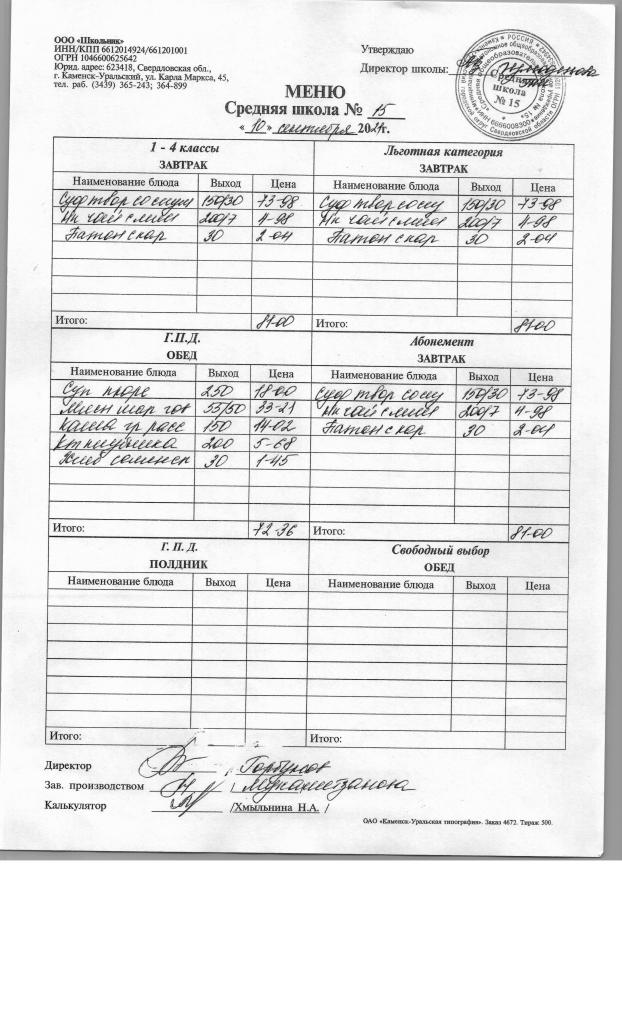 ООО «Школьник»
ИНН/КПП 6612014924/661201001
ОГРН 1046600625642
Юрид. адрес: 623418, Свердловская обл.,
г. Каменск-Уральский, ул. Карла Маркса, 45,
тел. раб. (3439) 365-243; 364-899
Утверждаю
Директор школы:
Средняя
школа
№ 15
МЕНЮ
Средняя школа № 15
« 10 » сентября 2021г.
1 - 4 классы
ЗАВТРАК
Наименование блюда Выход Цена
Суф твор со сгущ 150/30 73-98
Нк чай с лим 200/7 4-98
Батон с кар 30 2-04
Итого: 81-00
Льготная категория
ЗАВТРАК
Наименование блюда Выход Цена
Суф твор со сгущ 150/30 73-98
Нк чай с лим 200/7 4-98
Батон с кар 30 2-04
Итого: 81-00
Г.П.Д.
ОБЕД
Наименование блюда Выход Цена
Суп пюре 250 18-00
55/50 33-21
Каша гр расс 150 14-02
200 5-68
Хлеб 30 1-45
Итого: 72-36
Абонемент
ЗАВТРАК
Наименование блюда Выход Цена
Суф твор со сгущ 150/30 73-98
Нк чай с лим 200/7 4-98
Батон с кар 30 2-04
Итого: 81-00
Г. П. Д.
ПОЛДНИК
Наименование блюда Выход Цена
Итого:
Свободный выбор
ОБЕД
Наименование блюда Выход Цена
Итого:
Директор / Горбунов
Зав. производством / Мухаметзянова
Калькулятор /Хмылынина Н.А. /
ОАО «Каменск-Уральская типография». Заказ 4672. Тираж 500.